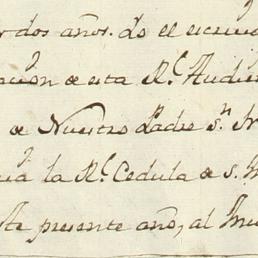 dos años. Yo el escrivᵒ
ación de esta Rˡ Audie
de Nuestro Padre Sⁿ Fr
la Rˡ Cedula de S. M
presente año, al